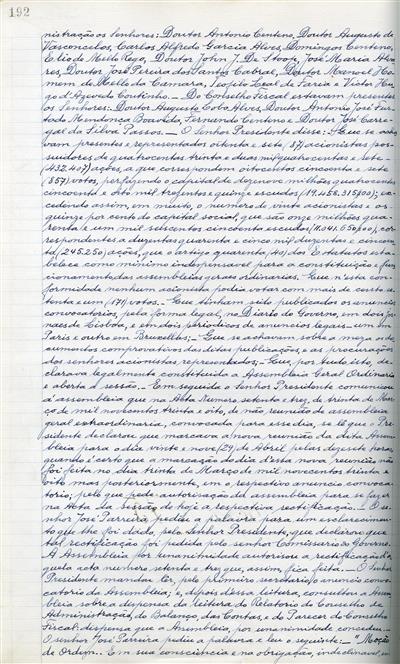 192
nistração os Senhores: Doutor Antonio Centeno, Doutor Augusto de
Vasconcelos, Carlos Alfredo Garcia Alves, Domingos Centeno,
Elio de Mello Rego, Doutor John J. De Stoop, José Maria Alva
res, Doutor José Pereira dos Santos Cabral, Doutor Manoel Ho
mem de Mello da Camara, Teofilo Leal de Faria e Victor Hu
go d'Azevedo Coutinho. - Do Conselho Fiscal estavam presentes
os Senhores: Doutor Augusto Lobo Alves, Doutor Antonio José Fur
tado Mendonça Boavida, Fernando Centeno e Doutor José Carre
gal da Silva Passos. — O Senhor Presidente disse: - Que se acha
vam presentes e representados oitenta e sete (87) acionistas pos
suidores de quatrocentas trinta e duas mil quatrocentas e sete -
(432.407) ações, a que correspondem oitocentos cincoenta e sete
(857) votos, perfazendo o capital de dezenove milhões quatrocentos
cincoenta e oito mil trezentos e quinze escudos (19.458.315$00); ex
cedendo assim, em muito, o numero de vinte acionistas e os
quinze por cento do capital social, que são onze milhões qua
renta e um mil seiscentos cincoenta escudos (11.041.650$00), cor
respondentes a duzentas quarenta e cinco mil duzentas e cincoen
ta (245.250) ações, que o artigo quarenta (40) dos Estatutos esta-
belece como minimo indispensavel para a constituição e fun
cionamento das assembleias gerais ordinarias. - Que n'esta con-
formidade nenhum acionista podia votar com mais de cento se
tenta e um (171) votos. - Que tinham sido publicados os anuncios
convocatorios, pela forma legal, no Diario do Governo, em dois jor
naes de Lisboa, e em dois periodicos de anuncios legais - um em
Paris e outro em Bruxellas; - Que se achavam sobre a mesa os do
cumentos comprovativos das ditas publicações, e as procurações
dos senhores acionistas representados; - Que, por tudo isto, de-
clarava legalmente constituida a Assembleia Geral Ordinaria
e aberta a sessão. - Em seguida o Senhor Presidente comunicou
á assembleia que na Acta Numero setenta e trez, de trinta de Mar
ço de mil novecentos trinta e oito, de não reunião de assembleia
geral extraordinaria, convocada para esse dia, se lê que o Pre
sidente declarou que marcava a nova reunião da dita Assem
bleia para o dia vinte e nove (29) de Abril pelas dezesete horas,
quando é certo que a marcação do dia d'essa nova reunião, não
foi feita no dia trinta de Março de mil novecentos trinta e
oito mas posteriormente, em o respectivo anuncio convoca-
torio; pelo que pede autorisação da assembleia para se fazer
na Acta da sessão de hoje a respectiva rectificação. - O Se
nhor José Parreira pediu a palavra para um esclarecimen
to que lhe foi dado pelo Senhor Presidente, que declarou que
tal rectificação foi pedida pelo Senhor Comissario do Governo.
A Assembleia por unanimidade autorisou a rectificação d'a
quela acta numero setenta e trez que, assim, fica feita. - O Senhor
Presidente mandou ler, pelo primeiro secretario, o anuncio convo-
catorio da Assembleia; e, depois dessa leitura, consultou a Assem
bleia sobre a dispensa da leitura do Relatorio do Conselho de
Administração, do Balanço das Contas, e do Parecer do Conselho
Fiscal; dispensa que a Assembleia, por unanimidade concedeu. -
O Senhor José Parreira pediu a palavra e leu o seguinte: - "Moção
de Ordem. - Em sua consciencia e na obrigação,